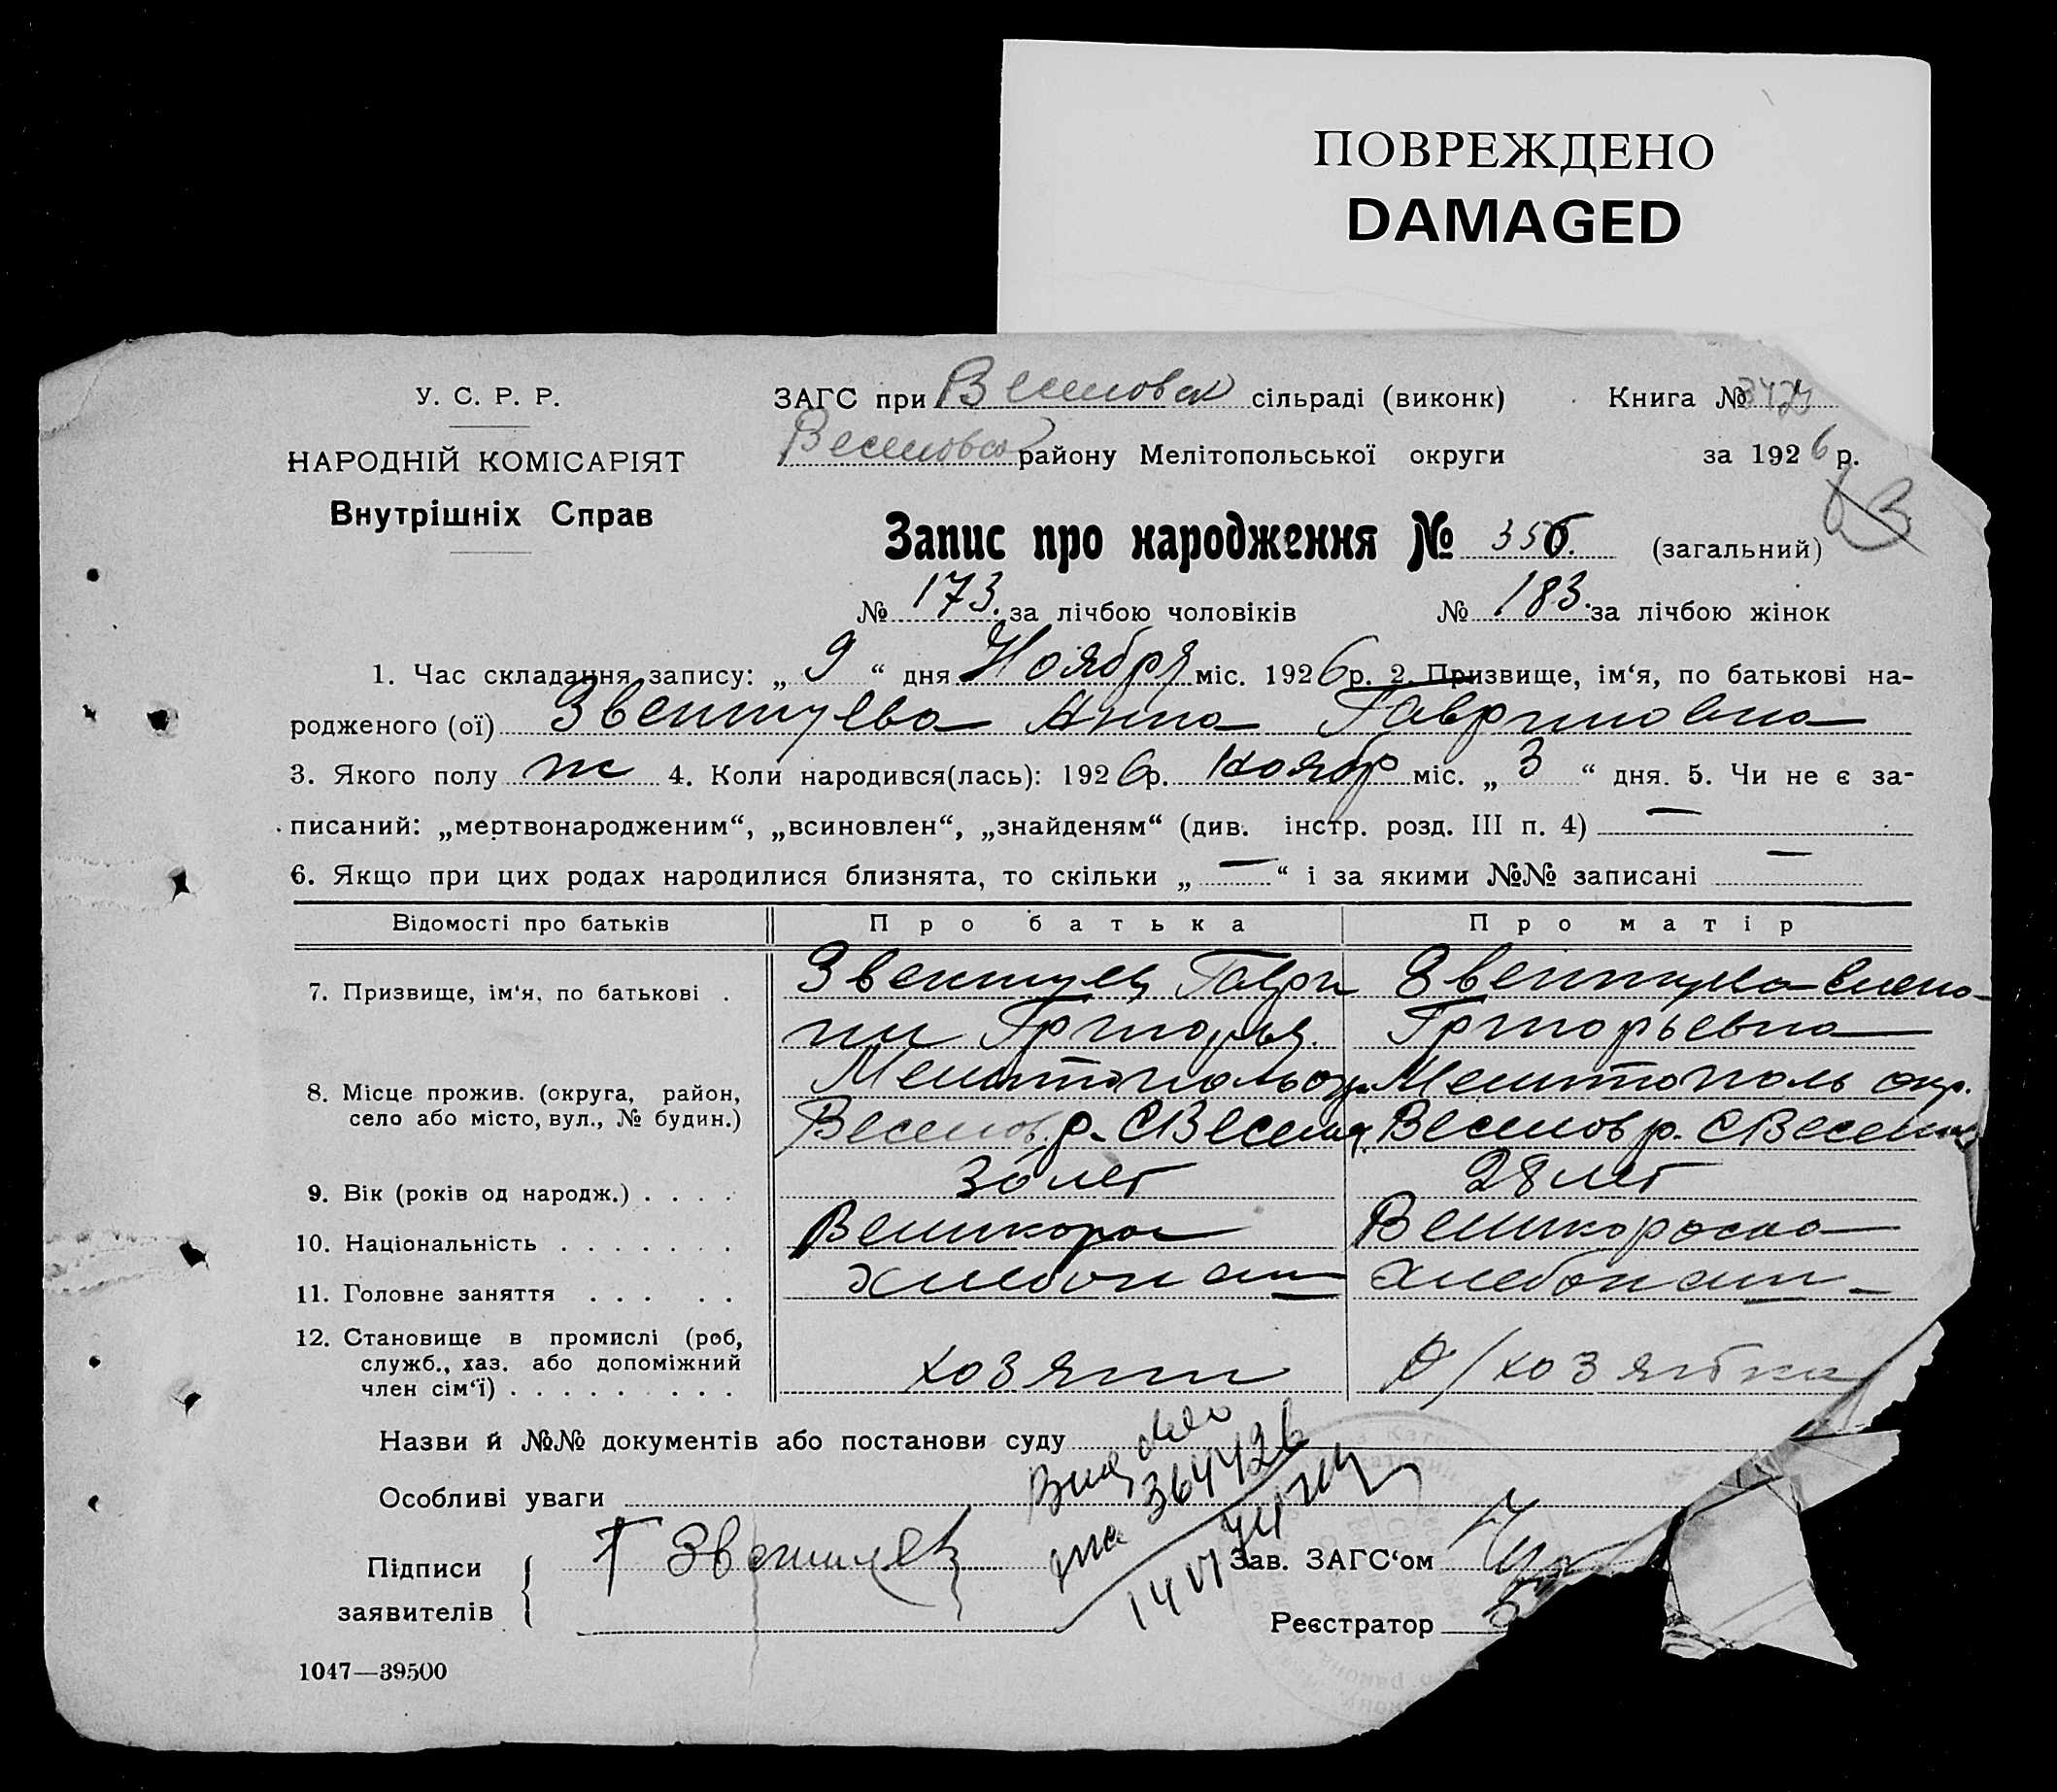 ПОВРЕЖДЕНО
DAMAGED
У. С. Р. Р.
НАРОДНІЙ КОМІСАРІЯТ
Внутрішніх Справ
ЗАГС при Веселовск сільраді (виконк)
Веселовск району Мелітопольської округи
Книга №
за 1926 р.
Запис про народження № 356. (загальний)
№ 173. за лічбою чоловіків № 183. за лічбою жінок
1. Час складання запису: „ 9 “ дня Ноября міс. 1926 р. 2. Призвище, ім‘я, по батькові на-
родженого (ої) Анна Гавриловна
3. Якого полу ж 4. Коли народився(лась): 1926 р. Ноябр міс. „ 3 “ дня. 5. Чи не є за-
писаний: „мертвонародженим“, „всиновлен“, „знайденям“ (див. інстр. розд. III п. 4) —
6. Якщо при цих родах народилися близнята, то скільки „ — “ і за якими №№ записані —
Відомості про батьків Про батька Про матір
7. Призвище, ім‘я, по батькові . Гаври Елена
ил Григорьев. Григорьевна
8. Місце прожив. (округа, район, село або місто, вул., № будин.)
Мелитополь окр. Мелитополь окр.
Веселов. р. с Весел Веселов р. с Весел
9. Вік (років од народж.) . . . . 30 лет 28 лет
10. Національність . . . . . . . Великорос Великороска
11. Головне заняття . . . . . хлебопаш — хлебопаш —
12. Становище в промислі (роб, служб., хаз. або допоміжний член сім‘ї) . . . . . . . . . хозяин д/хозяйка
Назви й №№ документів або постанови суду
Особливі уваги
Підписи
заявителів
Зав. ЗАГС‘ом
Реєстратор
1047—39500